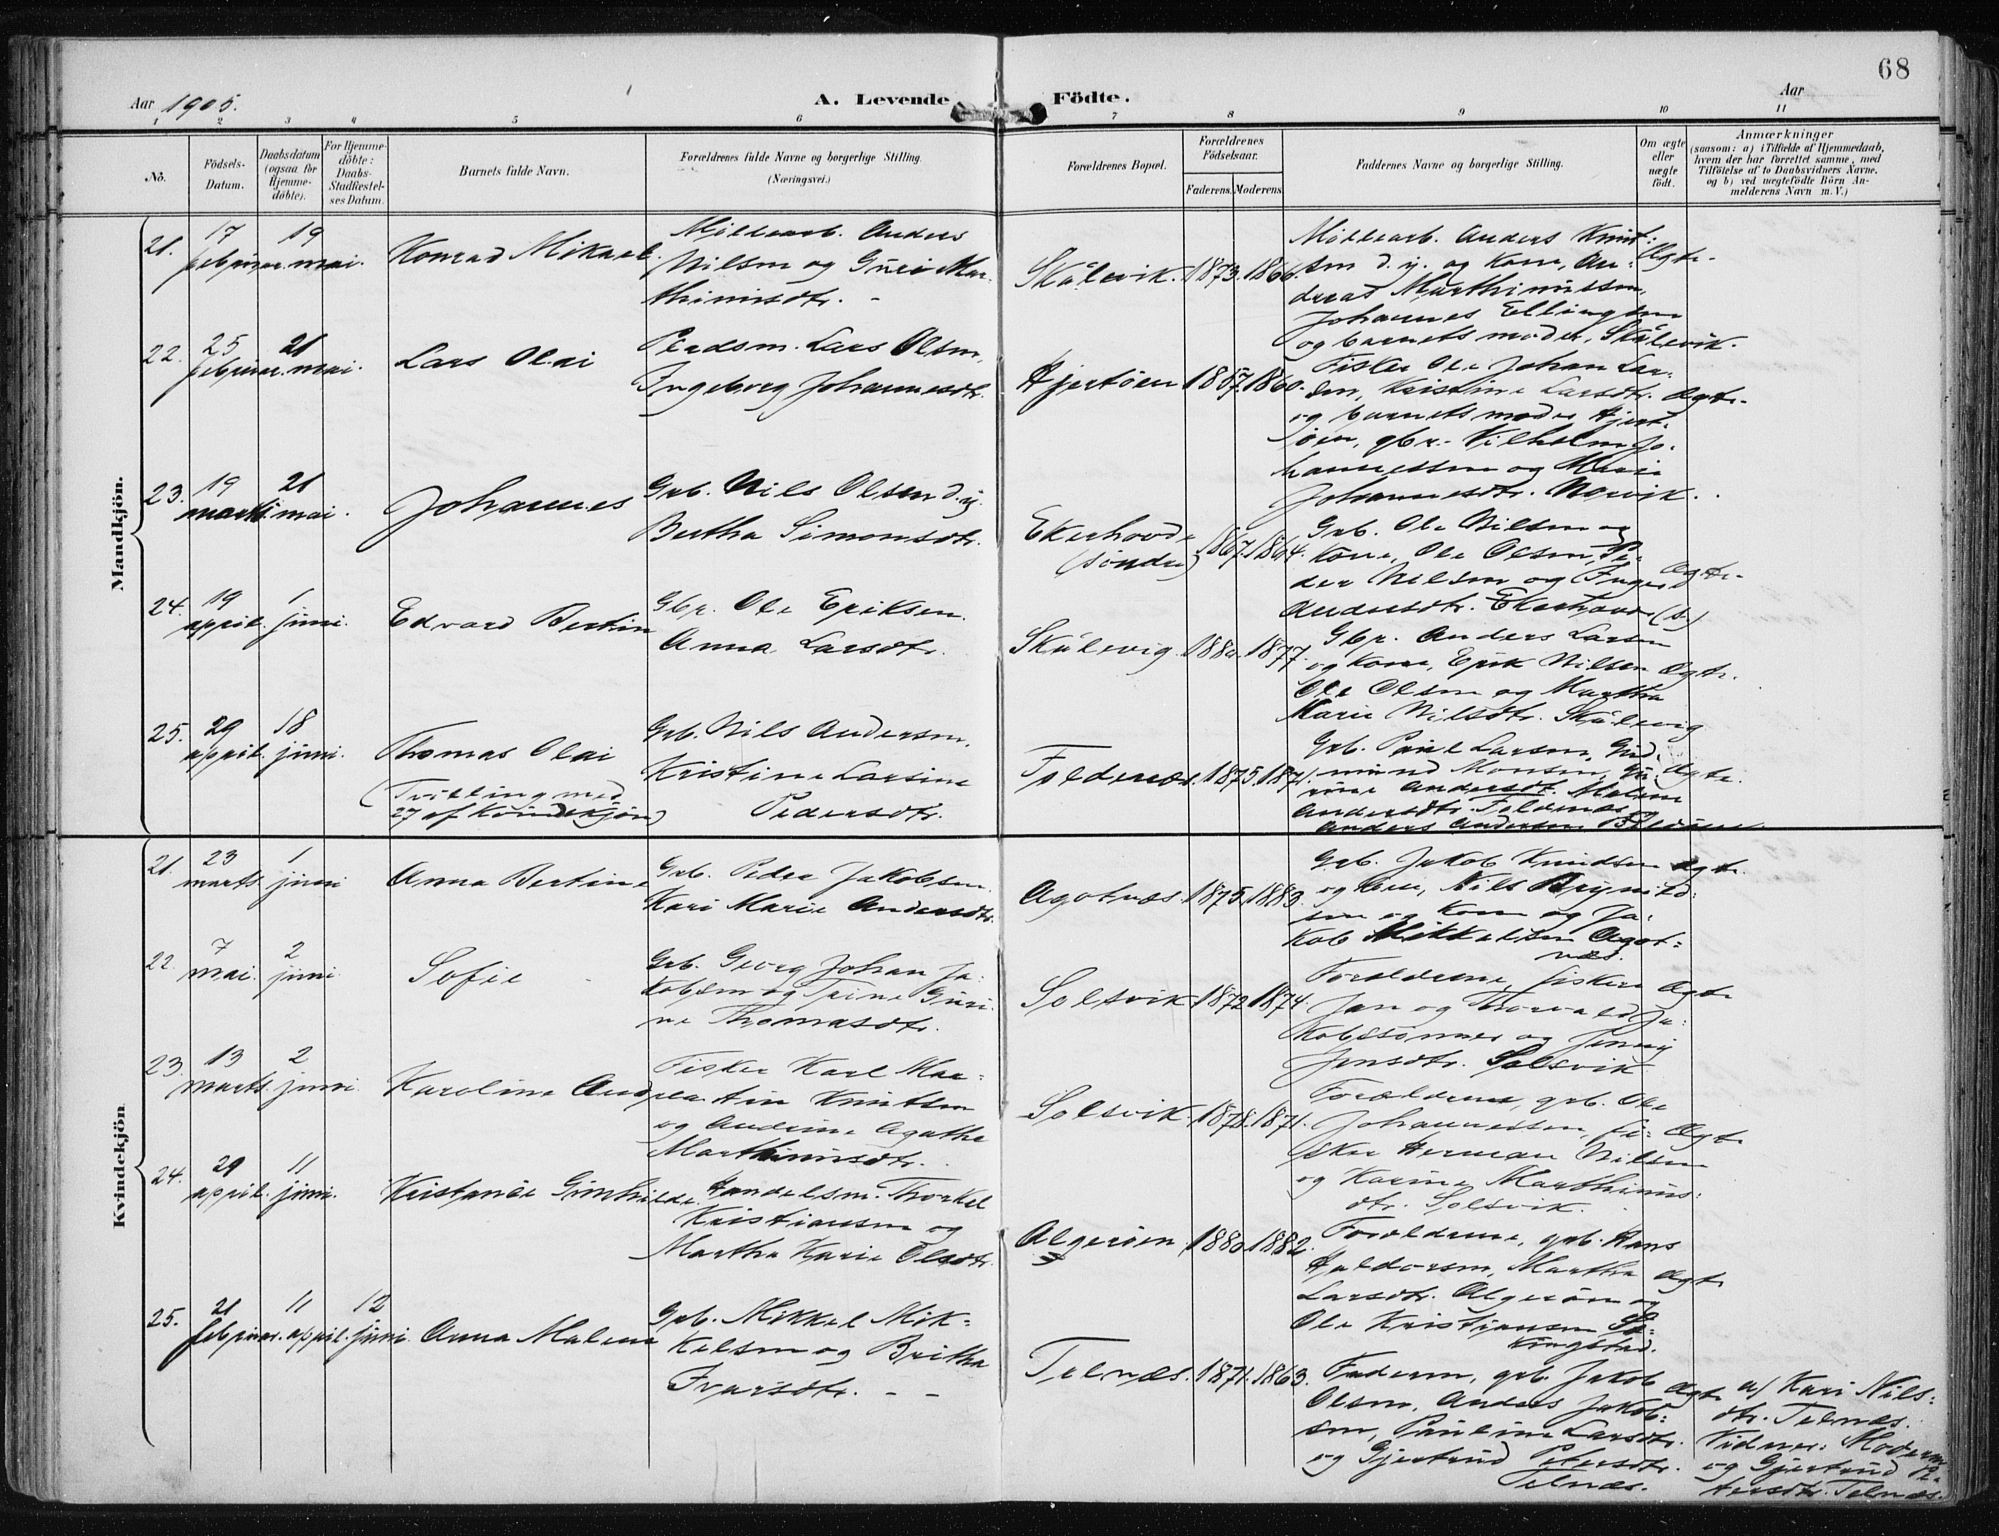 68
Aar 1905.
A. Levende Födte.
Aar
1 2 3 4 5 6 7 8 9 10 11
No.
Födsels-Datum.
Daabsdatum (ogsaa for Hjemmedöbte).
For Hjemmedöbte: Daabs-Stadfæstelses Datum.
Barnets fulde Navn.
Forældrenes fulde Navne og borgerlige Stilling.
(Næringsvei.)
Forældrenes Bopæl.
Forældrenes Födselsaar.
Faderens. Moderens.
Faddernes Navne og borgerlige Stilling.
Om ægte eller uægte født.
Anmærkninger
(saasom: a) i Tilfælde af Hjemmedaab, hvem der har forrettet samme, med Tilföielse af to Daabsvidners Navne, og b) ved uægtefödte Börn Anmelderens Navn m. V.)
Mandkjön.
21. 17 februar. 19 mai. Konrad Mikael.
Møllearb. Anders
Nilsen og Guri Mar-
thinusdtr. -
Skålevik. 1873. 1866.
Møllearb. Anders Knut-
sen d. y. og kone, An-
dreas Marthinussen,
Johannes Ellingsen
og barnets moder, Skålevik.
Ægte.
22. 25 februar. 21 mai. Lars Olai
Pladsm. Lars Olsen,
Ingeborg Johannesdtr.
Hjertøen 1867. 1860.
Fisker Ole Johan Lar-
sen, Kristine Larsdtr.
og barnets moder Hjert-
øen, gbr. Vilhelm Jo-
hannessen og Marie
Johannesdtr. Norvik.
Ægte.
23. 19 marts 21 mai. Johannes
Grb. Nils Olsen d. y.
Bertha Simonsdtr.
Ekerhovde
(søndre) 1867. 1864.
Grb. Ole Nilsen og
Kone, Ole Olsen, Pe-
der Nilsen og Inger
Andersdtr. Ekerhovde (s.)
Ægte.
24. 19 april. 1 juni. Edvard Bertin
Gbr. Ole Eriksen.
Anna Larsdtr.
Skålevig. 1880. 1877.
Gbr. Anders Larsen
og kone, Erik Nilsen
Ole Olsen og Martha
Marie Nilsdtr. Skålevig
Ægte.
25. 29 april. 18 juni. Thomas Olai
(Tvilling med
27 af Kvindekjön)
Grb. Nils Andersen,
Kristine Larsine
Pedersdtr.
Foldenæs. 1875. 1871.
Grb. Paul Larsen, Gud-
mund Monsen,
Andersdt. Malene
Andersdtr. Foldenæs
Anders Andersen
Ægte.
Kvindekjön
21. 23 marts 1 juni Anna Bertine
Grb. Peder Jakobsen.
Kari Marie Andersdtr.
Agotnæs. 1875. 1883.
Grb. Jakob Knudsen
og kone, Nils Brynild-
sen og kone og Ja-
kob Mikkelsen Agot-
næs.
Ægte
22. 7 mai. 2 juni Sofie
Grb. Georg Johan Ja-
kobsen og Trine Guri-
ne Thomasdtr.
Solsvik. 1872. 1874.
Forældrene, fiskere
Jan og Thorvald Ja-
kobssønner og Jenny
Jensdtr. Solsvik
Ægte
23. 13 marts. 2 juni. Karoline Andrea
Fisker Karl Mar-
tin Knutsen
og Andrine Agathe
Marthinusdtr.
Solsvik. 1878. 1871.
Forældrene, grb. Ole
Johannessen, fi-
sker Herman Nilsen
og Karine Marthinus-
dtr. Solsvik.
Ægte
24. 29 april. 11 juni. Kristanse Gunhilde
Handelsm. Thorkel
Kristiansen og
Martha Karie Olsdtr.
Algerøen 1880. 1882.
Forældrene, grb. Hans
Haldorsen, Martha
Larsdtr. Algerøen og
Ole Kristiansen
Kingstad.
Ægte
25. 21 februar. 11 april. 12 juni Anna Malene
Grb. Mikkel Mik-
kelsen og Britha
Ivarsdtr. - -
Telnæs. 1871. 1863.
Faderen, grb. Jakob
Olsen, Anders Jakob-
sen, Pauline Larsdtr.
og Gjertrud Petersdtr.
Telnæs.
Ægte
a/ Kari Nils-
dtr. Telnæs.
Vidner: Moderen
og Gjertrud Pe-
tersdtr. Telnæs.